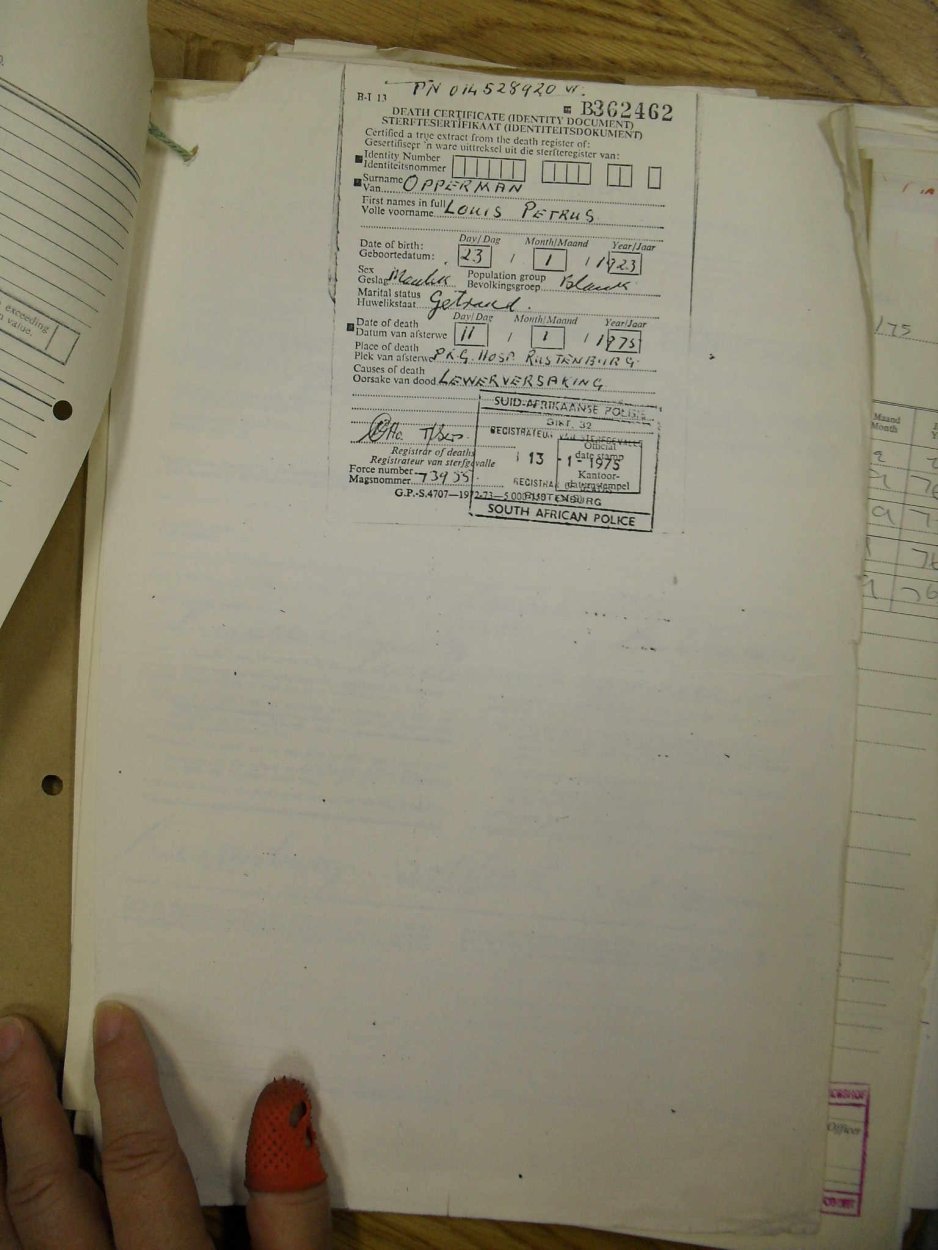 PN 014528920 W.
B-I 13
B362462
DEATH CERTIFICATE (IDENTITY DOCUMENT)
STERFTESERTIFIKAAT (IDENTITEITSDOKUMENT)
Certified a true extract from the death register of:
Gesertifiseer 'n ware uittreksel uit die sterfteregister van:
Identity Number
Identiteitsnommer
Surname
Van OPPERMAN
First names in full
Volle voorname LOUIS PETRUS
Day/Dag Month/Maand Year/Jaar
Date of birth:
Geboortedatum: 23 / 1 / 1923
Sex
Geslag Manlik
Population group
Bevolkingsgroep Blank
Marital status
Huwelikstaat Getroud.
Day/Dag Month/Maand Year/Jaar
Date of death
Datum van afsterwe 11 / 1 / 1975
Place of death
Plek van afsterwe P.K.G. HOSP. RUSTENBURG
Causes of death
Oorsake van dood LEWERVERSAKING
SUID-AFRIKAANSE POLISIE
DIKT. 32
REGISTRATEUR VAN STERFGEVALLE
Official
date stamp
13 -1- 1975
Kantoor-
datumstempel
RUSTENBURG
SOUTH AFRICAN POLICE
Registrar of deaths
Registrateur van sterfgevalle
Force number
Magsnommer 73955.
G.P.-S.4707—1972-73—5 000
exceeding
value.
175
Maand
Month
76
76
Officer